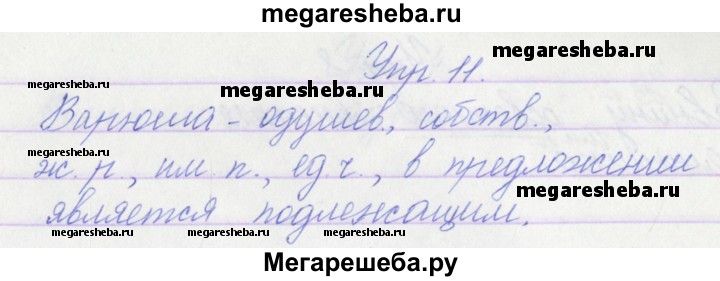 megaresheba.ru
Упр. 11.
megaresheba.ru
megaresheba.ru
megaresheba.ru
Варюша - одушев., собств.,
ж. р., им. п., ед.ч., в предложении
megaresheba.ru
является подлежащим.
megaresheba.ru
megaresheba.ru
megaresheba.ru
Мегарешеба.ру